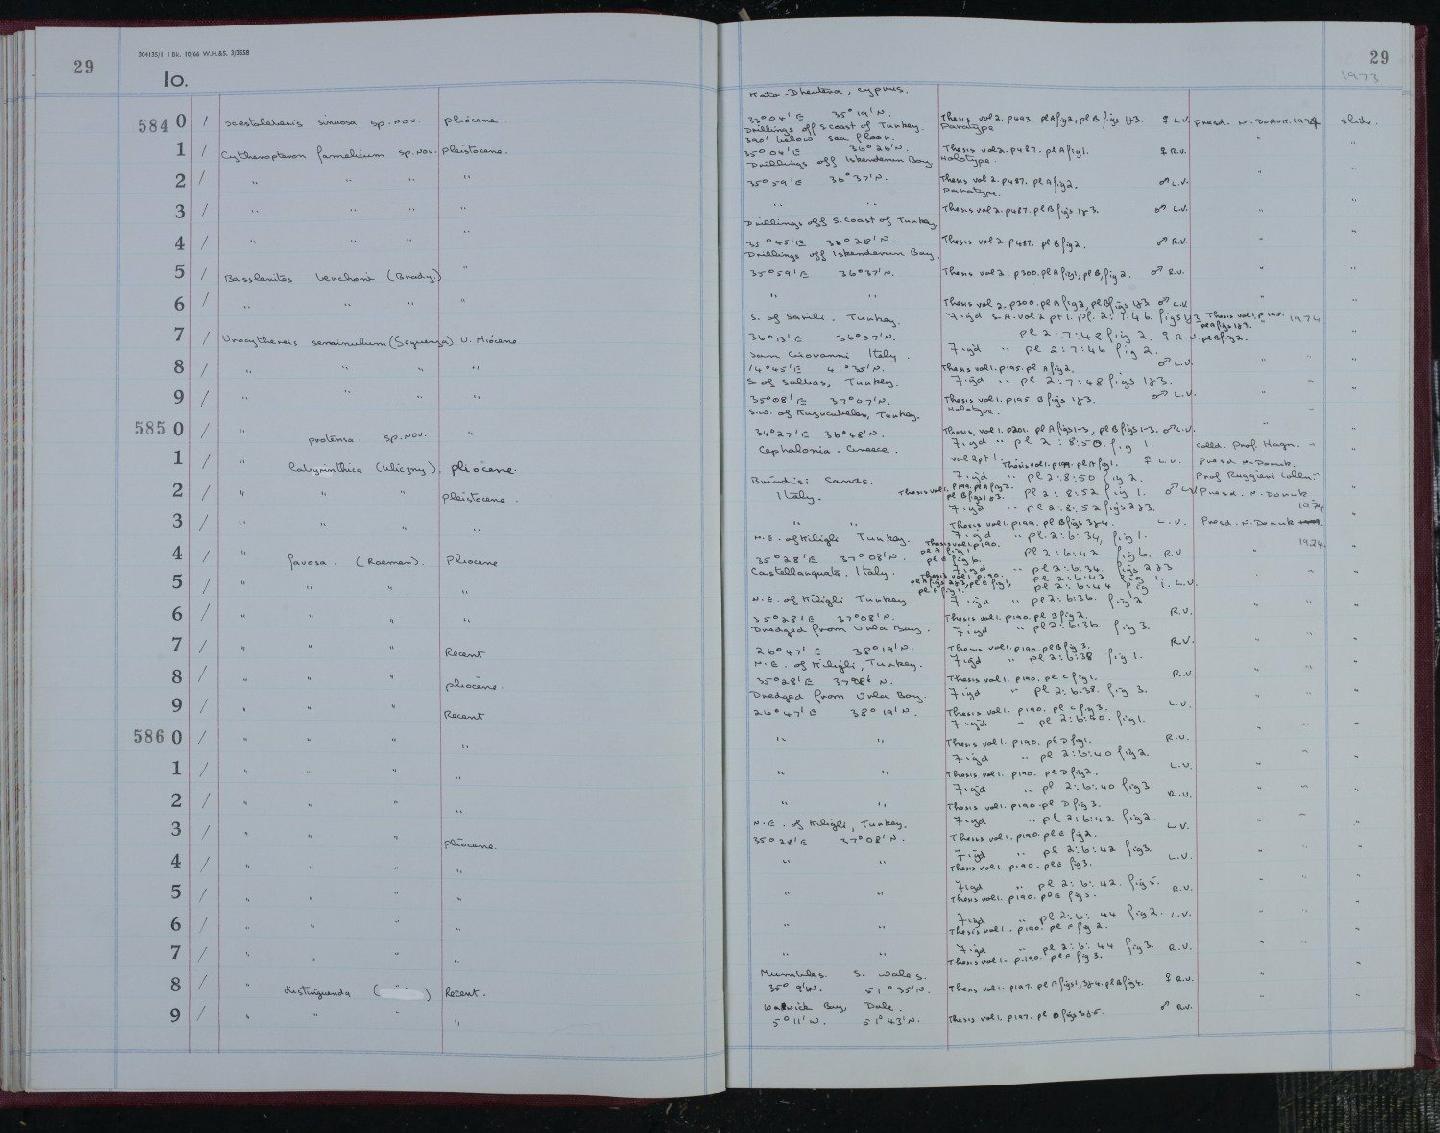 29
304135/1 1 Bk. 10/66 W.H.&S. 3/3558
Io.
5840 / sinuosa sp. nov. Pliocene.
1 / Cytheropteron famelicum sp. nov. Pleistocene.
2 / " " " "
3 / " " " "
4 / " " " "
5 / Basslerites berchoni (Brady) "
6 / " " " "
7 / Urocythereis seminulum (Seguenza) U. Miocene
8 / " " " "
9 / " " " "
5850 / " protensa sp. nov. "
1 / " labyrinthica (Uliczny). Pliocene.
2 / " " " Pleistocene.
3 / " " " "
4 / " favosa. (Roemer). Pliocene
5 / " " " "
6 / " " " "
7 / " " " Recent
8 / " " " Pliocene.
9 / " " " Recent
5860 / " " " "
1 / " " " "
2 / " " " "
3 / " " " Pliocene.
4 / " " " "
5 / " " " "
6 / " " " "
7 / " " " "
8 / " distinguenda ( ) Recent.
9 / " " " "
29
1973
Kato-Dheutera, Cyprus.
35° 19' N. Thesis vol 2. ♀ L.V. Presd. N. Doruk. 1974
Drillings off S. coast of Turkey. Paratype
390' below sea floor.
35° 04' E 36° 26' N. Thesis vol 2. p487. pl A fig 1. ♀ R.V.
Drillings off Iskenderun Bay. Holotype.
35° 59' E 36° 37' N. Thesis vol 2. p487. pl A fig 2. ♂ L.V.
Paratype.
" " Thesis vol 2. p487. pl B figs 1&3. ♂ L.V.
Drillings off S. Coast of Turkey
Thesis vol 2 p487. pl B fig 2. ♂ R.V.
Drillings off Iskenderun Bay.
35° 59' E 36° 37' N. Thesis vol 2. p300. pl A fig 1, pl B fig 2. ♂ R.V.
" " Thesis vol 2. p300. pl A fig 2, pl B figs 1&3 ♂ L.V.
S. of Turkey. Figd S-A. vol 2 pt 1. pl. 2: 7: 46. figs 1&3 Thesis vol 1, 1974
pl 2: 7: 48 fig 2. ♀ R.V. pl B fig 2.
San Giovanni Italy. Figd " pl 2: 7: 46 fig 2.
14° 45' E Thesis vol 1. p195. pl A fig 2. ♂ L.V.
S of Salbas, Turkey. Figd " pl 2: 7: 48 figs 1&3.
35° 08' E 37° 07' N. Thesis vol 1. p195 B figs 1&3. ♂ L.V.
S.W. of Kuzucubelen, Turkey. Holotype.
34° 27' E 36° 48' N. Thesis. vol 1. p201. pl A figs 1-3, pl B figs 1-3. ♂ L.V.
Cephalonia. Greece. Figd " pl 2: 8: 50. fig 1 Colld. Prof. Hagn.
vol 2 pt 1. Thesis vol 1. p199. pl A fig 1. ♀ L.V. Presd. N. Doruk.
Brindisi Figd " pl 2: 8: 50 fig 2. Prof Ruggieri Colln.
Italy. Thesis vol 1. p199. pl A fig 2. pl B figs 1&3. pl 2: 8: 52 fig 1. ♂ L.V. Presd. N. Doruk
Figd " pl 2: 8: 52 figs 2&3. 1974
" " Thesis vol 1. p199. pl B figs 3&4. L.V. Presd. N. Doruk
N.E. of Kiligli Turkey. Figd " pl. 2: 6: 34, fig 1. 1974.
35° 28' E 37° 08' N. Thesis vol 1. p190. pl 2: 6: 42 fig 6. R.V
Castellarquato. Italy. Figd " pl 2: 6: 34. figs 2&3
Thesis vol 1. p.90. pl 2: 6: 43 fig 1
pl 2: 6: 44 fig 1. L.V.
N.E. of Kiligli Turkey Figd " pl 2: 6: 36. fig 2
35° 28' E 37° 08' N. Thesis vol 1. p190. pl B fig 2. R.V.
Dredged from Urla Bay. Figd " pl 2: 6: 36 fig 3.
26° 47' E 38° 19' N. Thesis vol 1. p190. pl B fig 3. R.V.
N.E. of Kiligli, Turkey. Figd " pl 2: 6: 38 fig 1.
35° 28' E N. Thesis vol 1. p190. pl C fig 1. R.V
Dredged from Urla Bay. Figd " pl 2: 6: 38. fig 3.
26° 47' E 38° 19' N. Thesis vol 1. p190. pl C fig 3. L.V.
Figd " pl 2: 6: 40. fig 1.
" " Thesis vol 1. p190. pl D fig 1. R.V.
Figd " pl 2: 6: 40 fig 2.
" " Thesis vol 1. p190. pl D fig 2. L.V.
Figd " pl 2: 6: 40 fig 3
" " Thesis vol 1. p190. pl D fig 3. R.V.
N.E. of Kiligli, Turkey. Figd " pl 2: 6: 42 fig 2.
35° 28' E 37° 08' N. Thesis vol 1. p190. pl E fig 2. L.V.
" " Figd " pl 2: 6: 42 fig 3.
Thesis vol 1. p190. pl E fig 3. L.V.
" " Figd " pl 2: 6: 42. fig 5. R.V.
Thesis vol 1. p190. pl E fig 5.
" " Figd " pl 2: 6: 44 fig 2. L.V.
Thesis vol 1. p190. pl F fig 2.
" " Figd " pl 2: 6: 44 fig 3. R.V.
Thesis vol 1. p.190. pl F fig 3.
Mumbles. S. Wales.
51° 35' N. Thesis vol 1. p197. pl A figs 1, 3&4. pl B fig 4. ♀ R.V.
Warwick Bay, Dale.
5° 11' W. 51° 43' N. Thesis vol 1. p197. pl B figs 3&5. ♂ R.V.